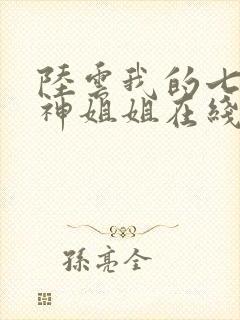 陸雲我的七
神姐姐在綫
孫亮全